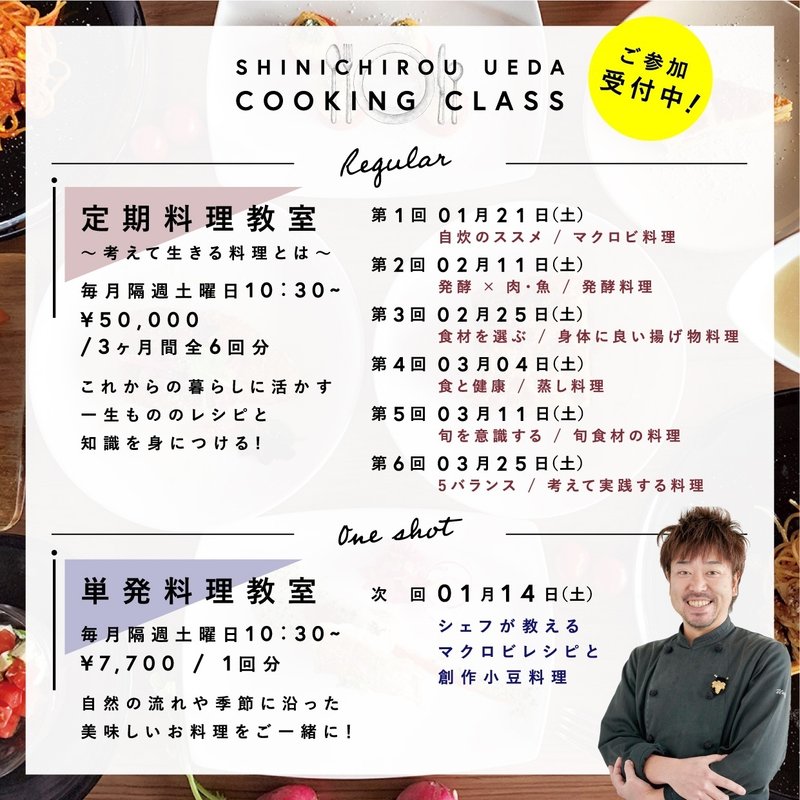 SHINICHIROU UEDA
COOKING CLASS
ご参加
受付中!
Regular
定期料理教室
～考えて生きる料理とは～
毎月隔週土曜日10:30~
¥50,000
/3ヶ月間全6回分
これからの暮らしに活かす
一生もののレシピと
知識を身につける!
第1回 01月21日(土)
自炊のススメ / マクロビ料理
第2回 02月11日(土)
発酵 × 肉・魚 / 発酵料理
第3回 02月25日(土)
食材を選ぶ / 身体に良い揚げ物料理
第4回 03月04日(土)
食と健康 / 蒸し料理
第5回 03月11日(土)
旬を意識する / 旬食材の料理
第6回 03月25日(土)
5バランス / 考えて実践する料理
One shot
単発料理教室
毎月隔週土曜日10:30~
¥7,700 / 1回分
自然の流れや季節に沿った
美味しいお料理をご一緒に!
次 回 01月14日(土)
シェフが教える
マクロビレシピと
創作小豆料理